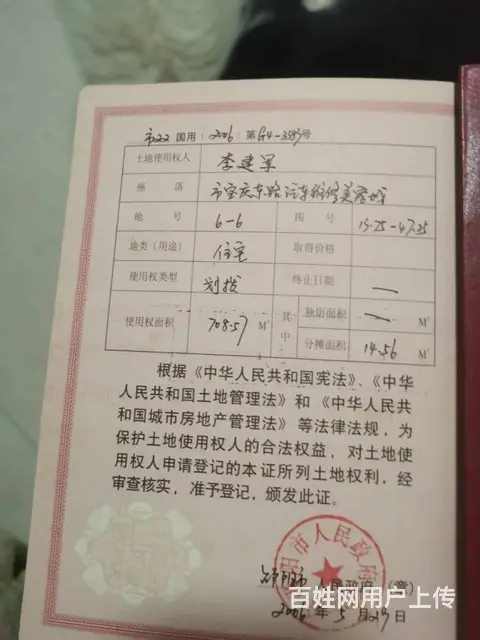 市 国用（2006）第G4-3383号
土地使用权人 李建军
座 落 市宝庆东路汽车维修美容城
地 号 6-6 图 号 15-25-47.25
地类（用途） 住宅 取得价格
使用权类型 划拨 终止日期 —
使用权面积 708.57 M² 其中 独用面积 — M²
分摊面积 14.56 M²
根据《中华人民共和国宪法》、《中华
人民共和国土地管理法》和《中华人民共
和国城市房地产管理法》等法律法规，为
保护土地使用权人的合法权益，对土地使
用权人申请登记的本证所列土地权利，经
审查核实，准予登记，颁发此证。
阳市人民政府
邵阳市 人民政府（章）
2006年5月29日
百姓网用户上传